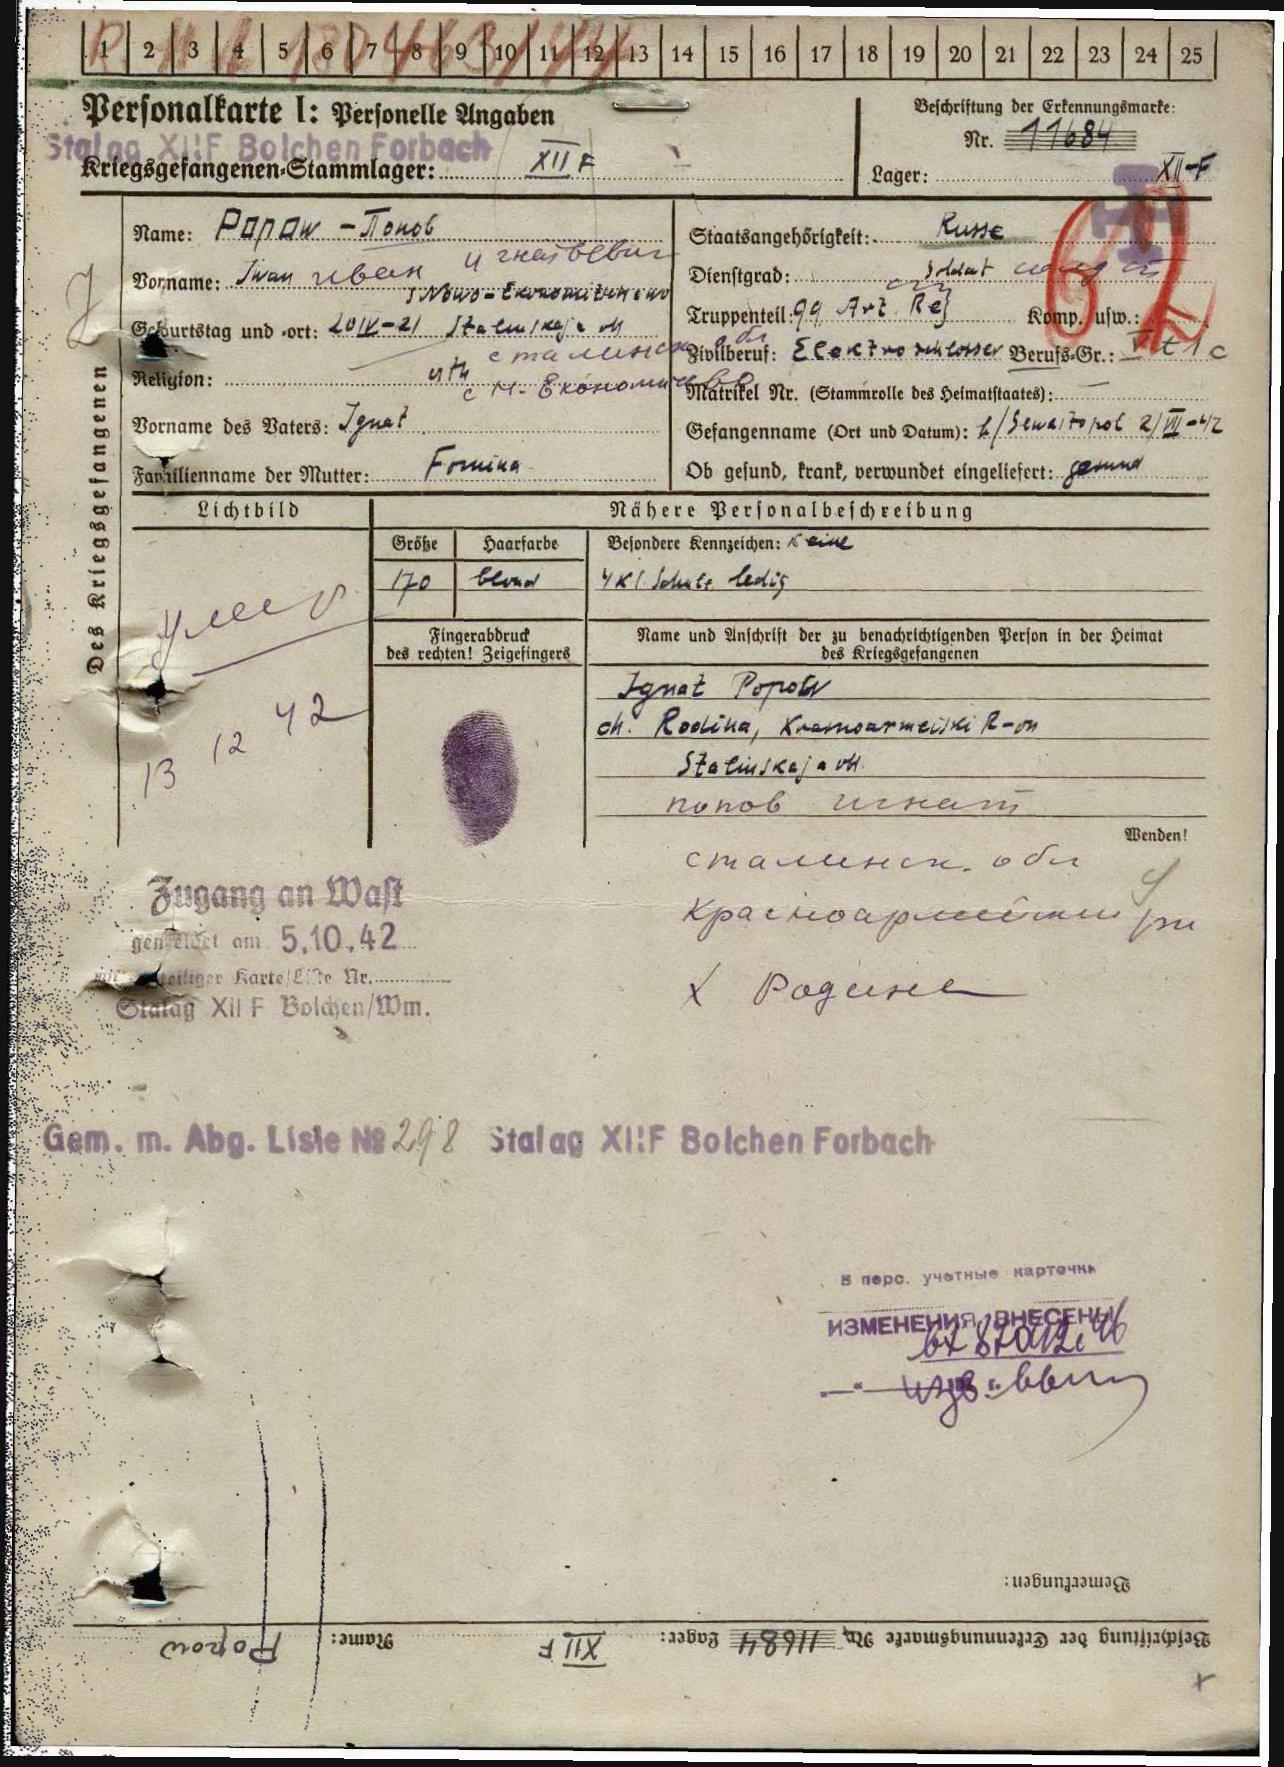 1 2 3 4 5 6 7 8 9 10 11 12 13 14 15 16 17 18 19 20 21 22 23 24 25
Personalkarte I: Personelle Angaben
Beschriftung der Erkennungsmarke:
Nr. 11684
Stalag XIIF Bolchen Forbach
Kriegsgefangenen-Stammlager: XII F
Lager: XII-F
Des Kriegsgefangenen
Name: Popow - Попов
Vorname: Iwan иван игнатьевич
s. Nowo-Ekonomitscheskowo
Geburtstag und -ort: 20 IV-21 Stalinskaja obl
сталинск обл
Religion:
с Н. Економическое
Vorname des Vaters: Ignat
Familienname der Mutter: Fomina
Staatsangehörigkeit: Russe
Dienstgrad: Soldat солдат
Truppenteil: 99 Art. Reg Komp. usw.:
Zivilberuf: Elektroschlosser Berufs-Gr.:
Matrikel Nr. (Stammrolle des Heimatstaates): —
Gefangenname (Ort und Datum): b/Sewastopol 2/VII-42
Ob gesund, krank, verwundet eingeliefert: gesund
Lichtbild
Nähere Personalbeschreibung
Größe Haarfarbe
Besondere Kennzeichen: Keine
170 blond
4 Kl. Schule ledig
умер
13 12 42
Fingerabdruck
des rechten! Zeigefingers
Name und Anschrift der zu benachrichtigenden Person in der Heimat
des Kriegsgefangenen
Ignat Popow
ch. Rodina, Krasnoarmeiski R-on
Stalinskaja obl.
попов игнат
Wenden!
сталинск. обл
Красноармейский рн
х Родина
Zugang an Wast
gemeldet am 5.10.42
Karte/Liste Nr.
Stalag XII F Bolchen/Wm.
Gem. m. Abg. Liste № 298 Stalag XIIF Bolchen Forbach
В перс. учетные карточки
ИЗМЕНЕНИЯ ВНЕСЕНЫ
Bemerkungen:
Beschriftung der Erkennungsmarke Nr. 11684 Lager: XII F Name: Popow